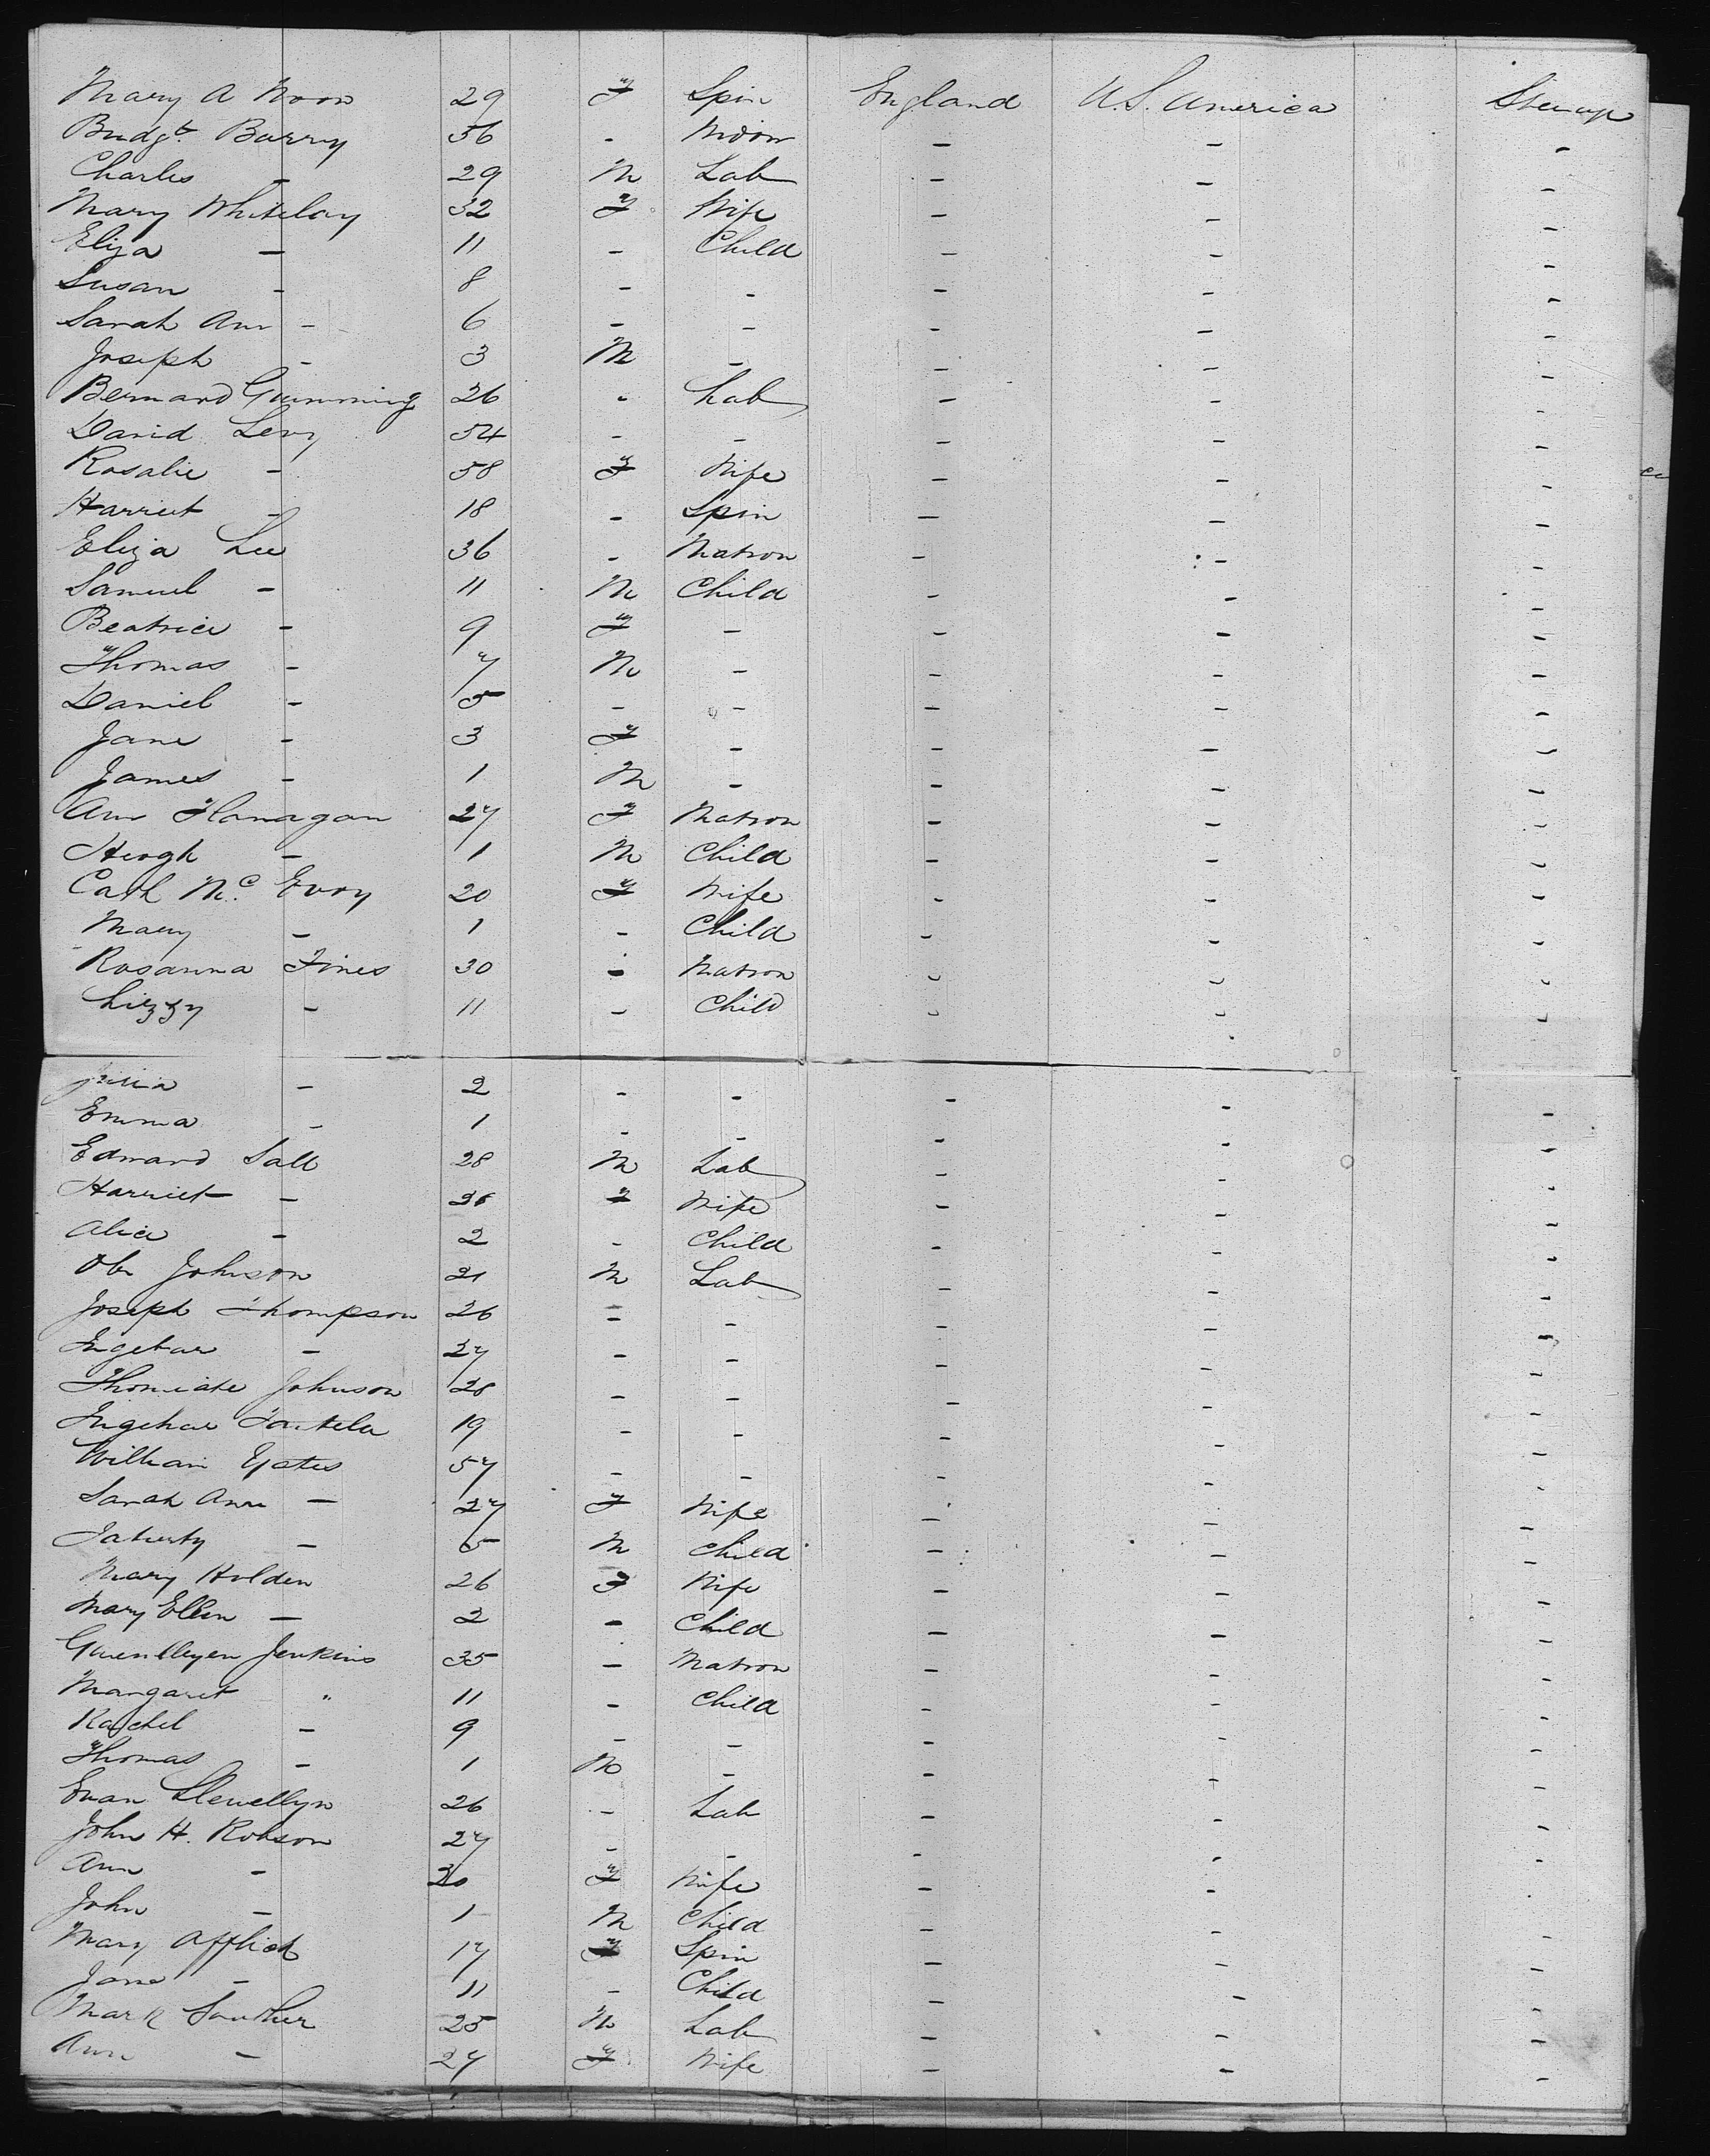 Mary A Noon 29 F Spin England U.S. America Steerage
Bridgt. Barry 56 - Widow - - -
Charles - 29 M Lab - - -
Mary Whitelay 32 F Wife - - -
Eliza - 11 - Child - - -
Susan - 8 - - - - -
Sarah Ann - 6 - - - - -
Joseph - 3 M - - - -
Bernard Gumming 26 " Lab - - -
David Levy 54 - - - - -
Rosalie - 58 F Wife - - -
Harriet - 18 - Spin - - -
Eliza Lee 36 - Matron - - -
Samuel - 11 M Child - - -
Beatrice - 9 F - - - -
Thomas - 7 M - - - -
Daniel - 5 - - - - -
Jane - 3 F - - - -
James - 1 M - - - -
Ann Flanagan 27 F Matron - - -
Hugh - 1 M Child - - -
Cath Mc. Evoy 20 F Wife - - -
Mary - 1 - Child - - -
Rosanna Fines 30 - Matron - - -
Lizzy - 11 - Child - - -
Julia - 2 - - - - -
Emma - 1 - - - - -
Edward Sall 28 M Lab - - -
Harriet - 26 F Wife - - -
Alice - 2 - Child - - -
Ole Johnson 21 M Lab - - -
Joseph Thompson 26 - - - - -
Ingebar - 27 - - - - -
Johnson 28 - - - - -
19 - - - - -
William Yates 57 - - - - -
Sarah Ann - 27 F Wife - - -
- 5 M Child - - -
Mary Holden 26 F Wife - - -
Mary Ellen - 2 - Child - - -
Gwenllyen Jenkins 35 - Matron - - -
Margaret " 11 - Child - - -
Rachel - 9 - - - - -
Thomas - 1 M - - - -
Evan Llewellyn 26 - Lab - - -
John H. Robson 27 - - - - -
Ann - 30 F Wife - - -
John - 1 M Child - - -
Mary Afflick 17 F Spin - - -
Jane - 11 - Child - - -
Mark Souther 25 M Lab - - -
Ann - 27 F Wife - - -